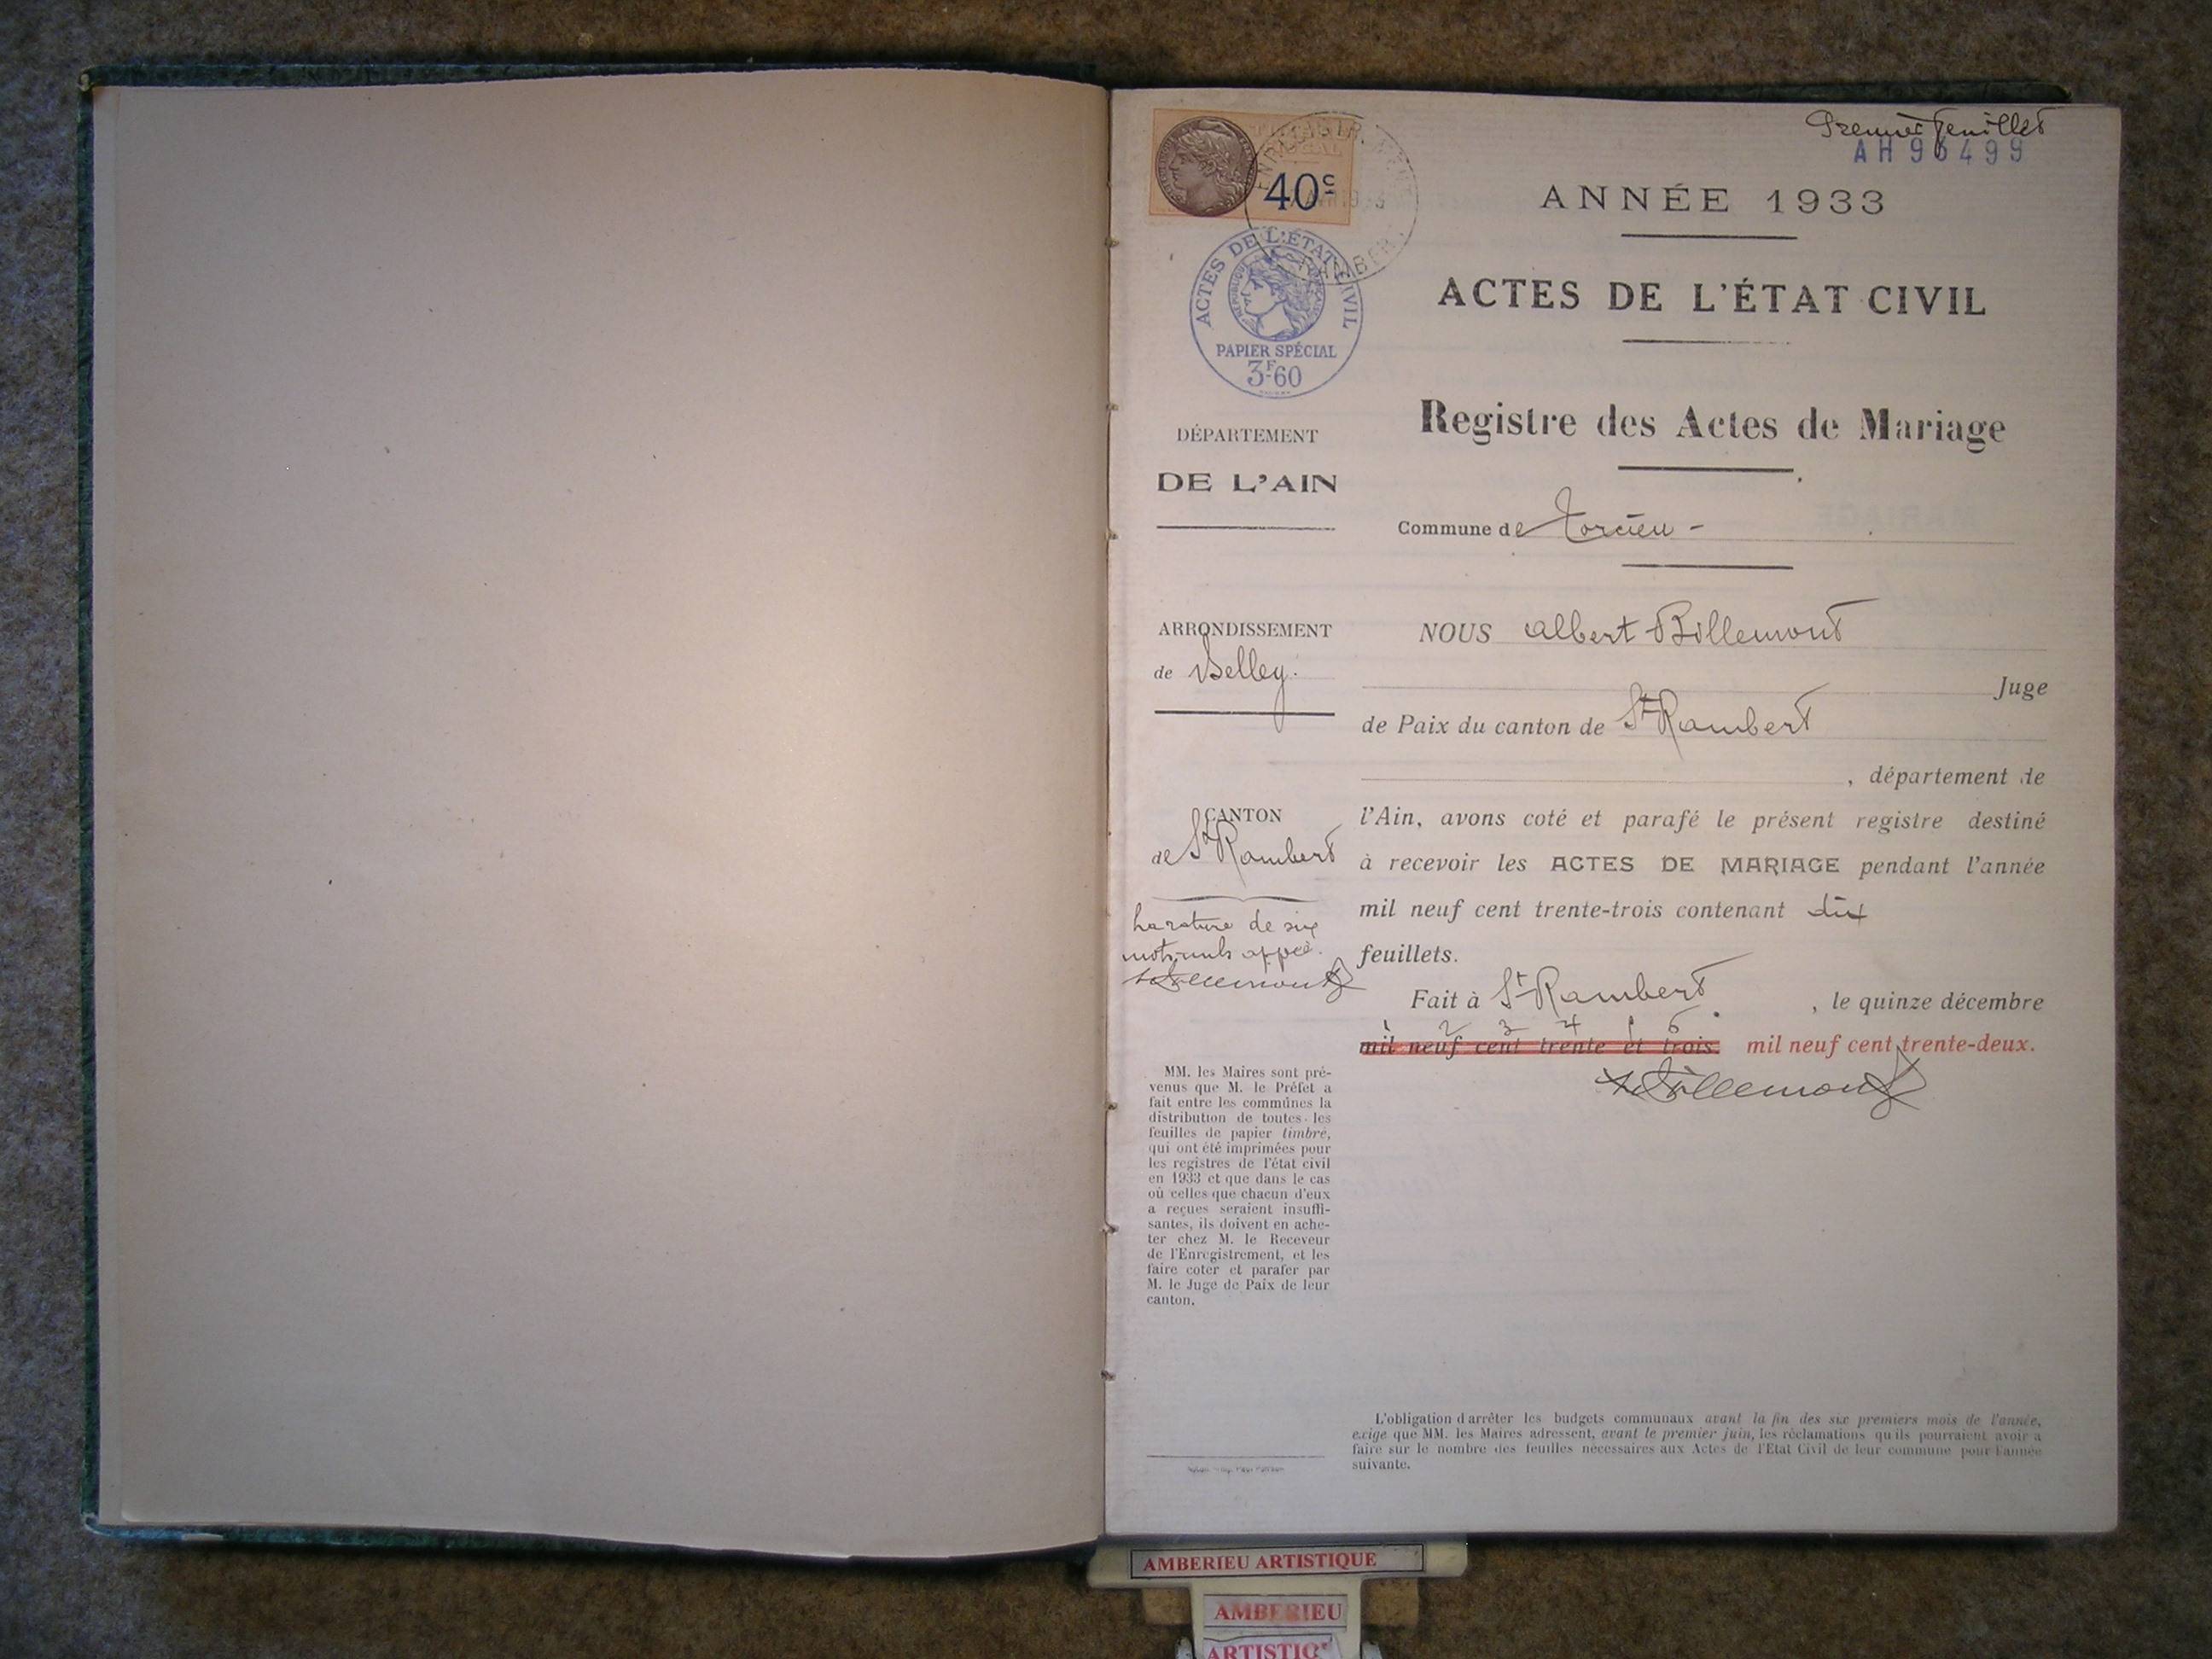 Premier feuillet
AH 96499
40c
ACTES DE L'ÉTAT CIVIL
RÉPUBLIQUE FRANÇAISE
PAPIER SPÉCIAL
3F60
ANNÉE 1933
ACTES DE L'ÉTAT CIVIL
Registre des Actes de Mariage
Commune de Torcieu -
DÉPARTEMENT
DE L'AIN
ARRONDISSEMENT
de Belley.
CANTON
de St Rambert
La rature de six
mots nuls appée.
ABillemont
MM. les Maires sont pré-
venus que M. le Préfet a
fait entre les communes la
distribution de toutes les
feuilles de papier timbré,
qui ont été imprimées pour
les registres de l'état civil
en 1933 et que dans le cas
où celles que chacun d'eux
a reçues seraient insuffi-
santes, ils doivent en ache-
ter chez M. le Receveur
de l'Enregistrement, et les
faire coter et parafer par
M. le Juge de Paix de leur
canton.
NOUS Albert Billemont
Juge
de Paix du canton de St Rambert
, département de
l'Ain, avons coté et parafé le présent registre destiné
à recevoir les ACTES DE MARIAGE pendant l'année
mil neuf cent trente-trois contenant dix
feuillets.
Fait à St Rambert , le quinze décembre
1 2 3 4 5 6
mil neuf cent trente et trois. mil neuf cent trente-deux.
ABillemont
L'obligation d'arrêter les budgets communaux avant la fin des six premiers mois de l'année,
exige que MM. les Maires adressent, avant le premier juin, les réclamations qu'ils pourraient avoir à
faire sur le nombre des feuilles nécessaires aux Actes de l'Etat Civil de leur commune pour l'année
suivante.
AMBERIEU ARTISTIQUE
AMBERIEU
ARTISTIQ